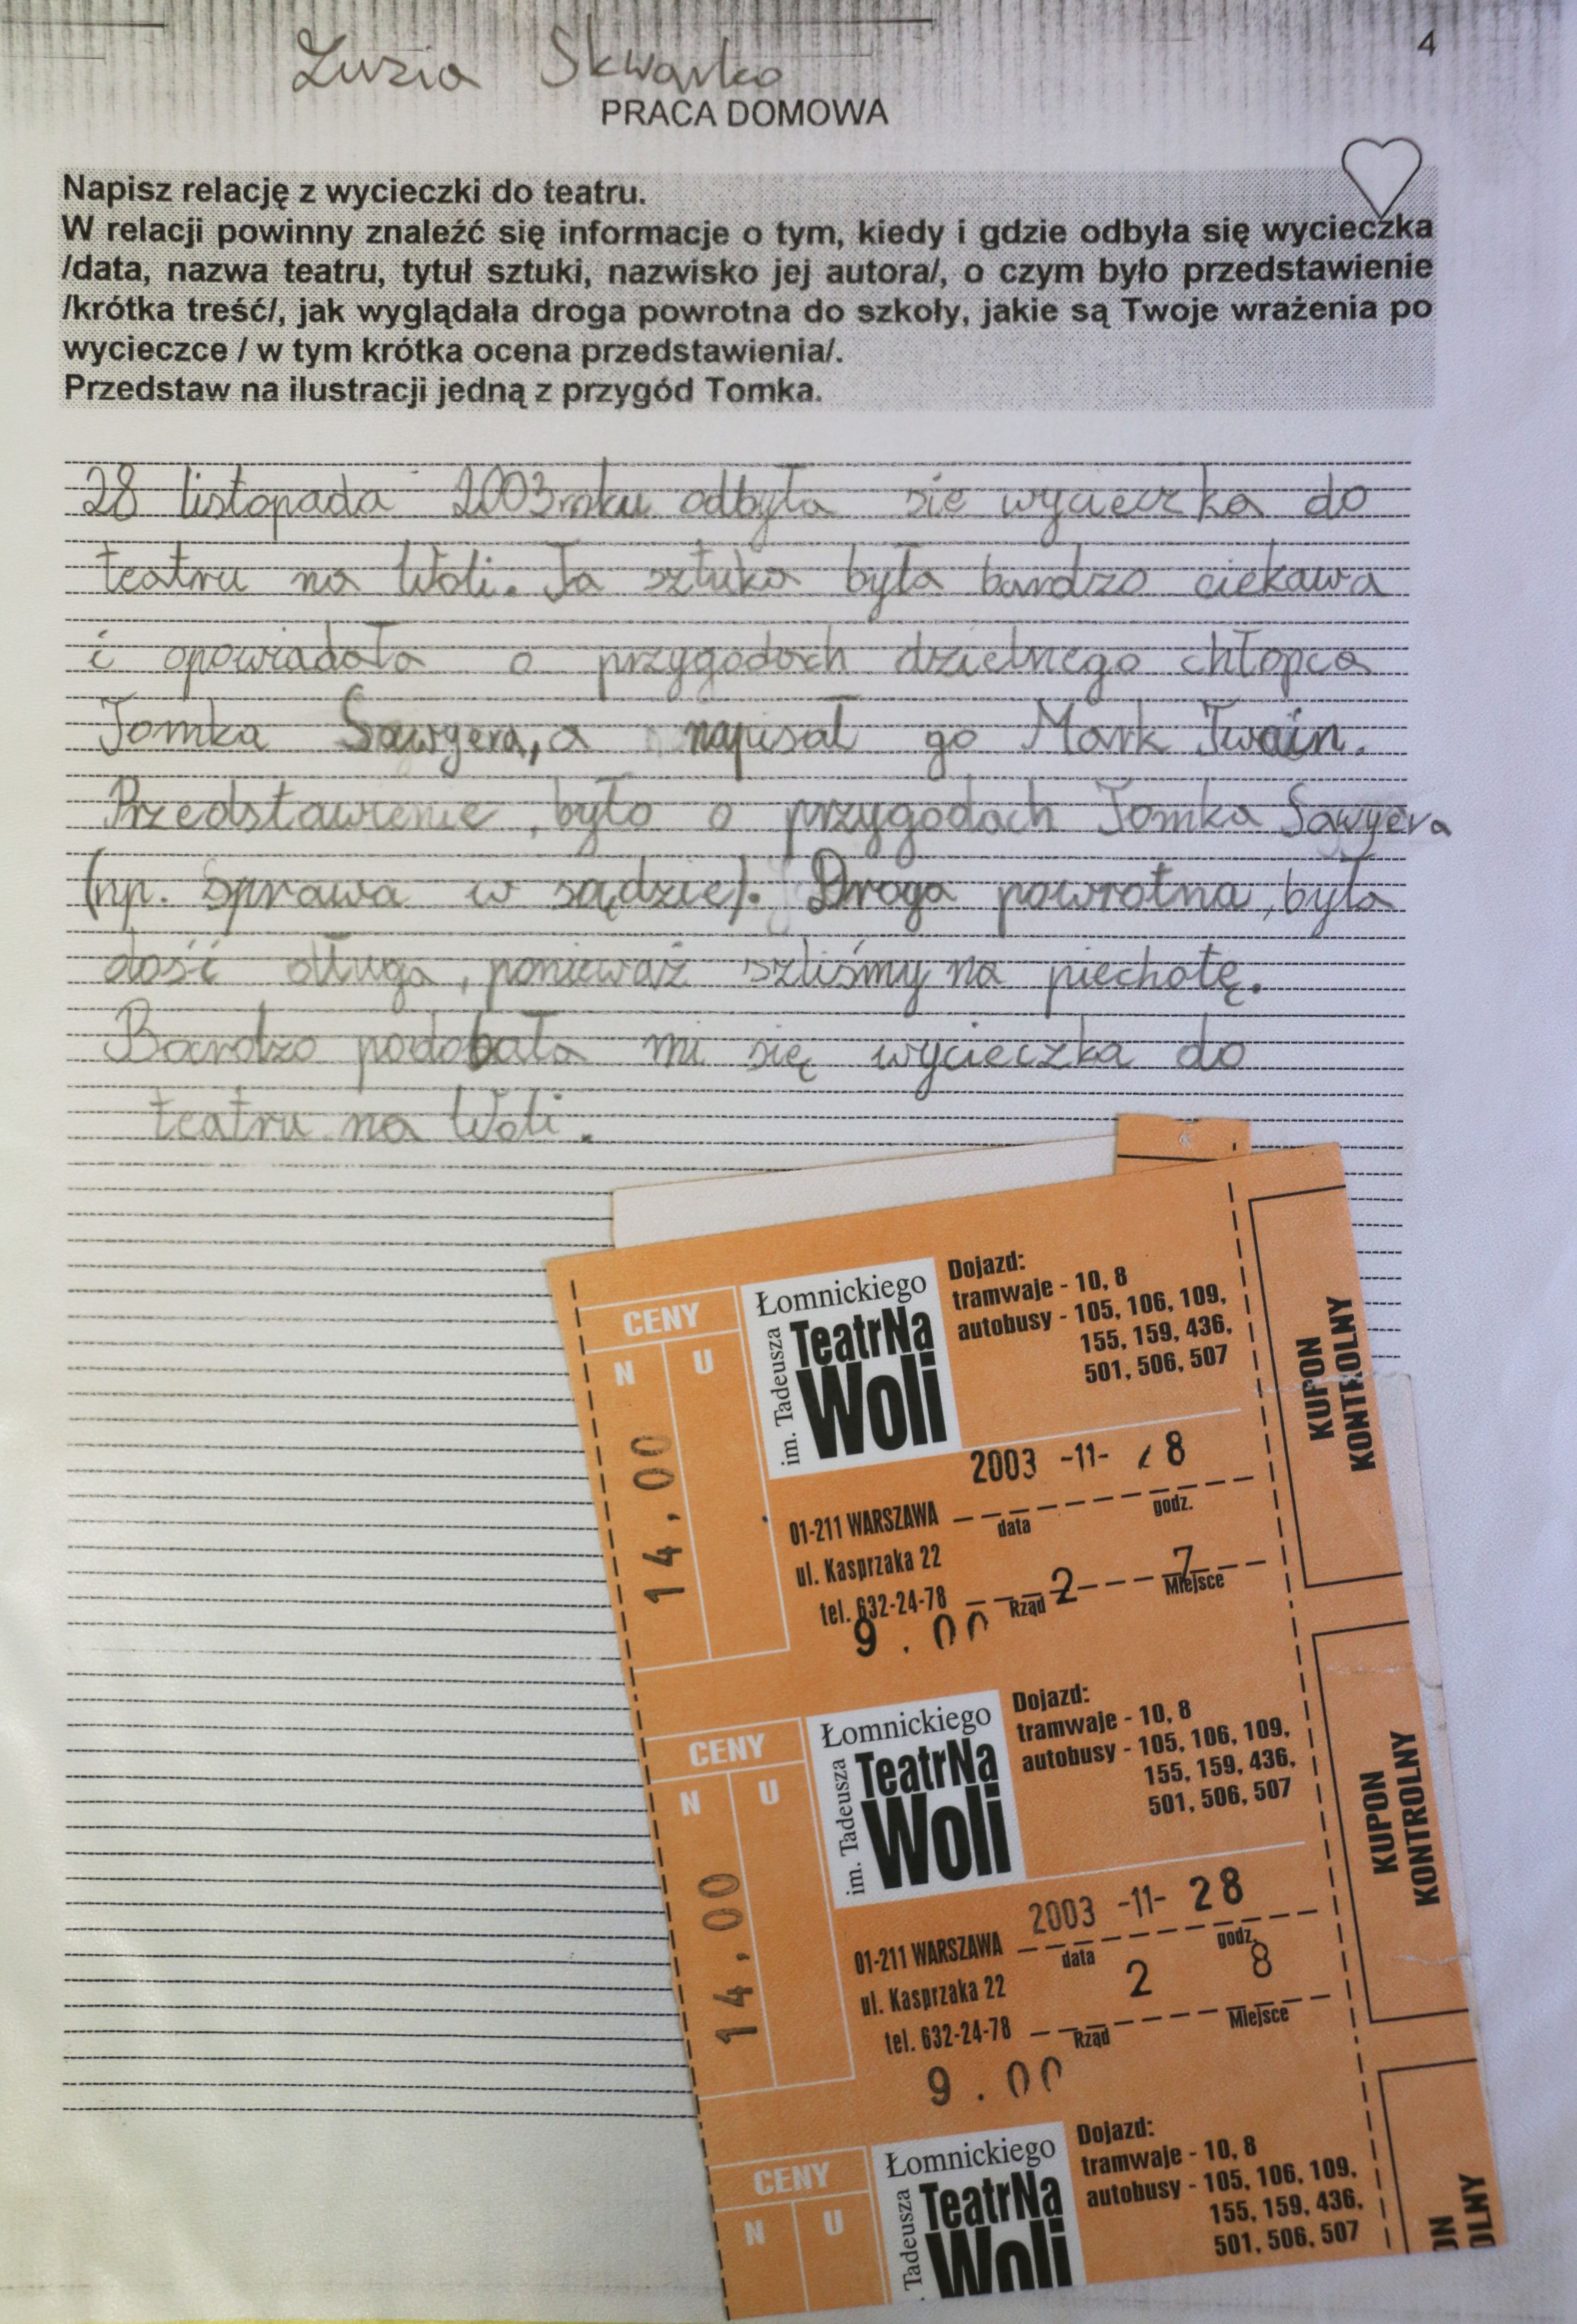 4
Zuzia Skwarko
PRACA DOMOWA
Napisz relację z wycieczki do teatru.
W relacji powinny znaleźć się informacje o tym, kiedy i gdzie odbyła się wycieczka
/data, nazwa teatru, tytuł sztuki, nazwisko jej autora/, o czym było przedstawienie
/krótka treść/, jak wyglądała droga powrotna do szkoły, jakie są Twoje wrażenia po
wycieczce / w tym krótka ocena przedstawienia/.
Przedstaw na ilustracji jedną z przygód Tomka.
28 listopada 2003roku odbyła sie wycieczka do
teatru na Woli. Ta sztuka była bardzo ciekawa
i opowiadała o przygodach dzielnego chłopca
Tomka Sawyera, a napisał go Mark Twain.
Przedstawienie, było o przygodach Tomka Sawyera
(np. sprawa w sądzie). Droga powrotna, była
dość długa, ponieważ szliśmy na piechotę.
Bardzo podobała mi się wycieczka do
teatru na Woli.
CENY
N U
14,00
Łomnickiego
im. Tadeusza
TeatrNa
Woli
Dojazd:
tramwaje - 10, 8
autobusy - 105, 106, 109,
155, 159, 436,
501, 506, 507
2003 -11- 8
01-211 WARSZAWA
data godz.
ul. Kasprzaka 22
2 7
tel. 632-24-78
Rząd Miejsce
9.00
KUPON
KONTROLNY
CENY
N U
14,00
Łomnickiego
im. Tadeusza
TeatrNa
Woli
Dojazd:
tramwaje - 10, 8
autobusy - 105, 106, 109,
155, 159, 436,
501, 506, 507
2003 -11- 28
01-211 WARSZAWA
data godz.
ul. Kasprzaka 22
2 8
tel. 632-24-78
Rząd Miejsce
9.00
KUPON
KONTROLNY
CENY
N U
Łomnickiego
Tadeusza
TeatrNa
Woli
Dojazd:
tramwaje - 10, 8
autobusy - 105, 106, 109,
155, 159, 436,
501, 506, 507
ON
OLNY